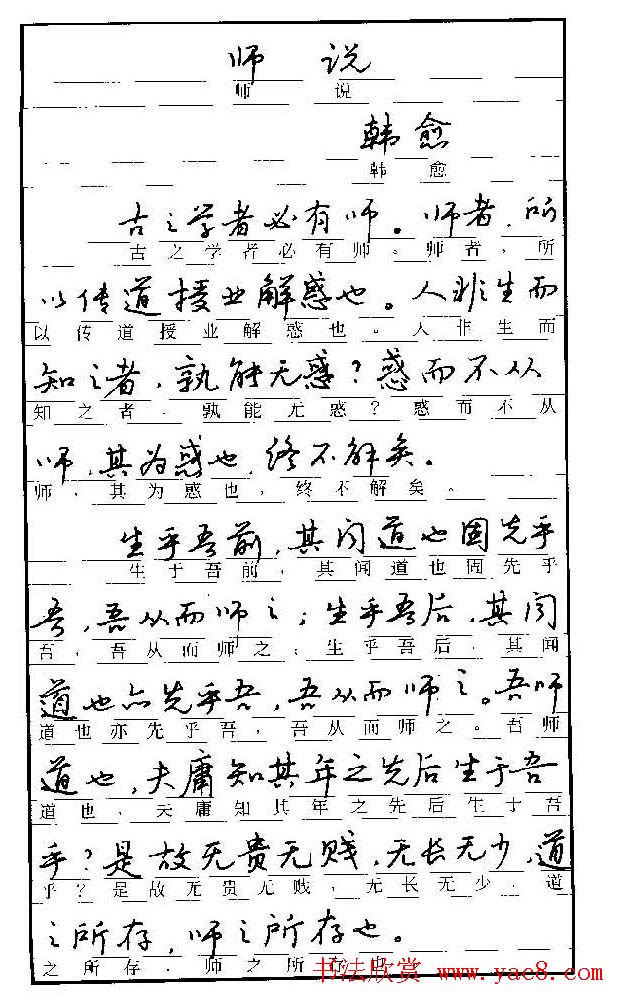 师 说
师 说
韩愈
韩愈
古之学者必有师。师者,所
古之学者必有师。师者,所
以传道授业解惑也。人非生而
以传道授业解惑也。人非生而
知之者,孰能无惑?惑而不从
知之者,孰能无惑?惑而不从
师,其为惑也,终不解矣。
师,其为惑也,终不解矣。
生乎吾前,其闻道也固先乎
生于吾前,其闻道也固先乎
吾,吾从而师之;生乎吾后,其闻
吾,吾从而师之;生乎吾后,其闻
道也亦先乎吾,吾从而师之。吾师
道也亦先乎吾,吾从而师之。吾师
道也,夫庸知其年之先后生于吾
道也,夫庸知其年之先后生于吾
乎?是故无贵无贱,无长无少,道
乎?是故无贵无贱,无长无少,道
之所存,师之所存也。
之所存,师之所存也
书法欣赏 www.yac8.com